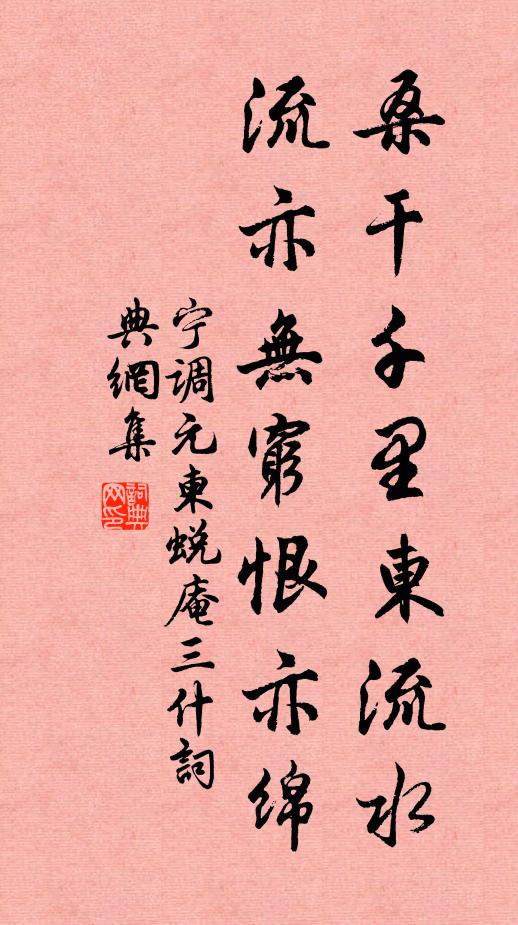 桑干千里東流水
流亦無窮恨亦绵
宁調元東蜕庵三什詞
典網集
詞典网印